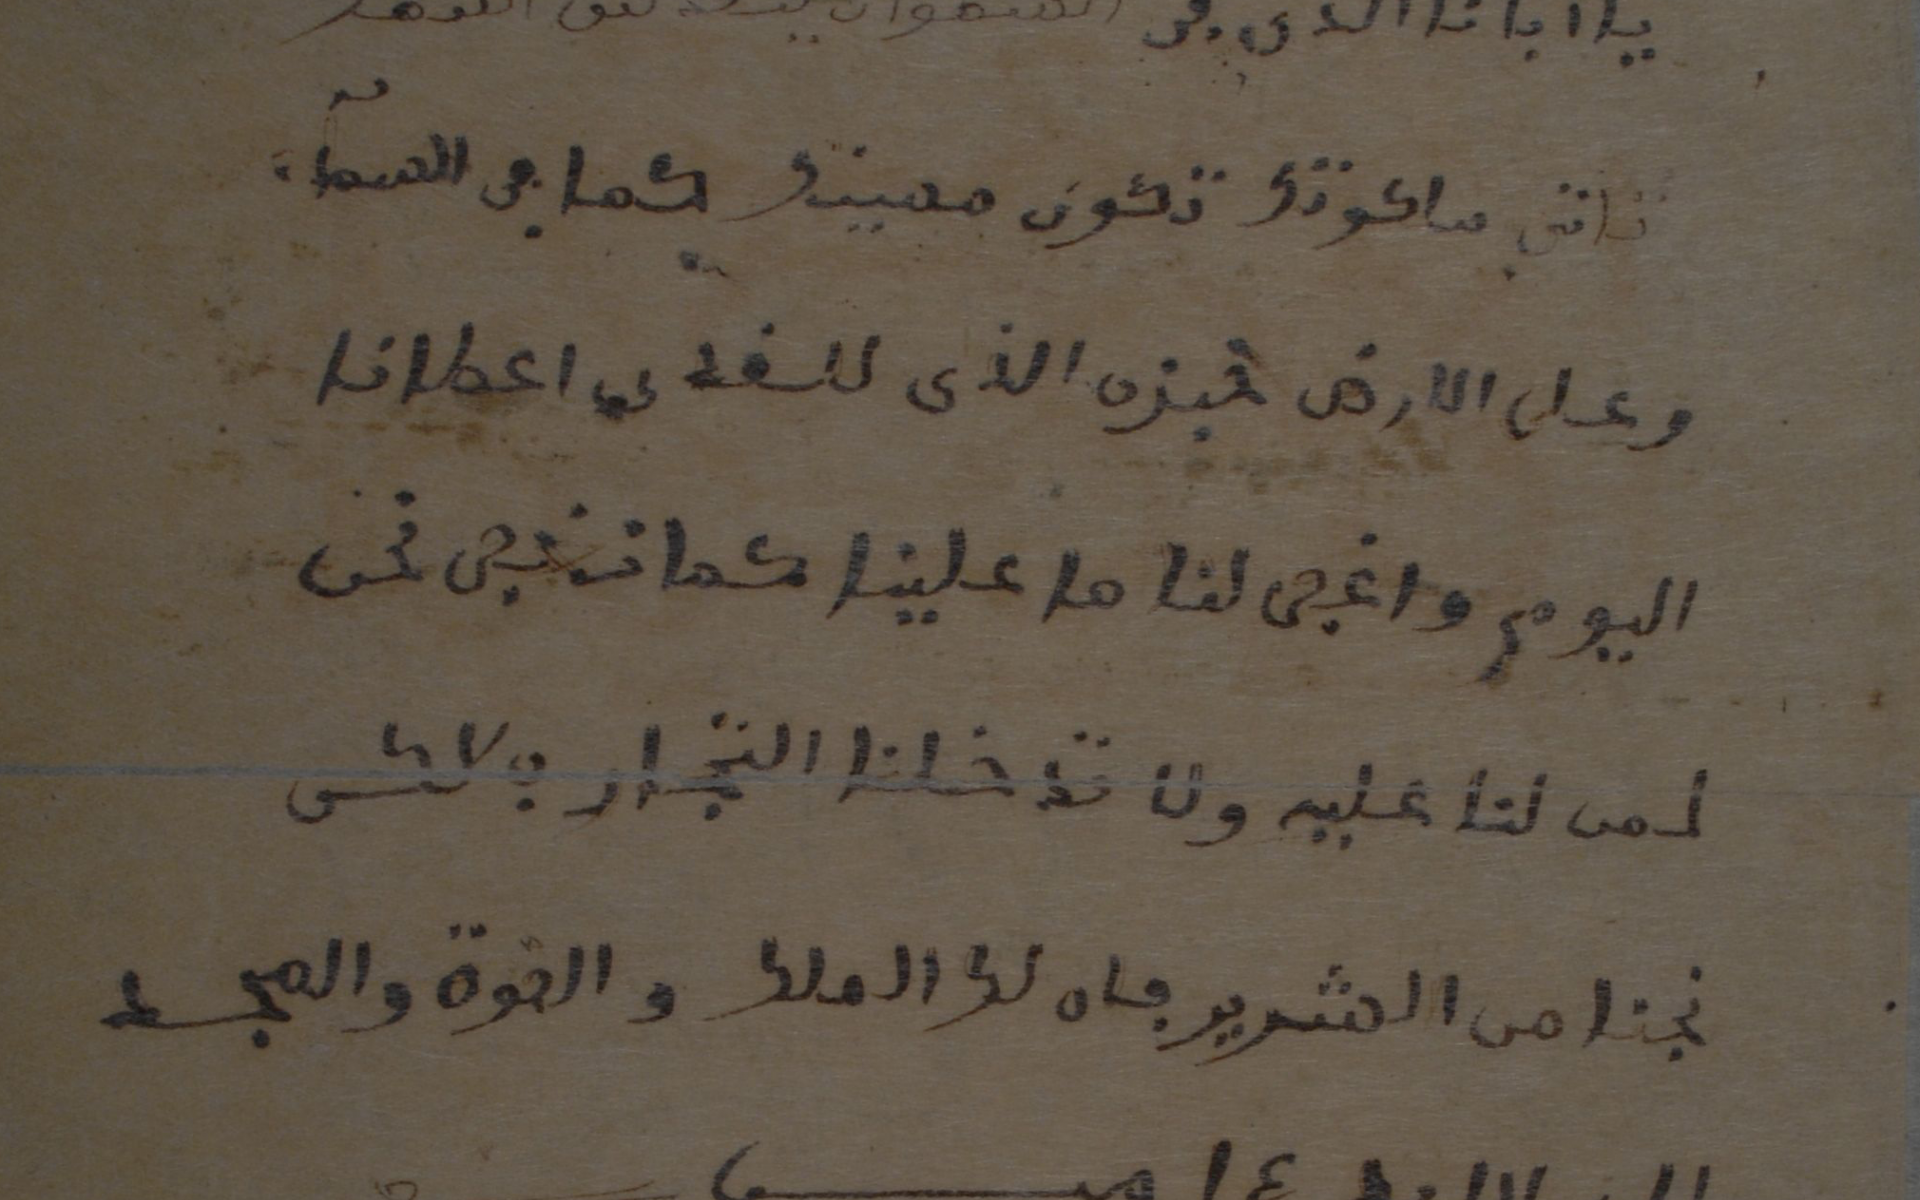 يا ابانا الذي في السموات ليتقدس اسمك
تاتي ملكوتك تكون مسيتك كما في السماء
وعلى الارض خبزنا الذي للغد اعطانا
اليوم واغفر لنا ما علينا كما نغفر نحن
لمن لنا عليه ولا تدخلنا التجار ب لاكن
نجنا من الشرير فان لك الملك والقوة والمجد
الى الابد امين